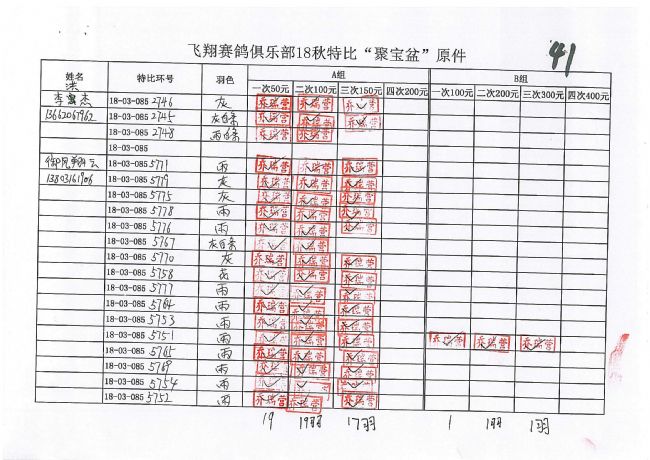 飞翔赛鸽俱乐部18秋特比“聚宝盆”原件 41
姓名 特比环号 羽色 A组 B组
一次50元 二次100元 三次150元 四次200元 一次100元 二次200元 三次300元 四次400元
李 杰 18-03-085 2746 灰 乔瑞营 乔瑞营
13662067962 18-03-085 2745 灰白条 乔瑞营 乔瑞营
18-03-085 2748 雨白条 乔瑞营 乔瑞营
18-03-085
18-03-085 5771 雨 乔瑞营 乔瑞营 乔瑞营
18-03-085 5779 灰 乔瑞营 乔瑞营 乔瑞营
18-03-085 5775 灰 乔瑞营 乔瑞营 乔瑞营
18-03-085 5778 雨 乔瑞营 乔瑞营 乔瑞营
18-03-085 5776 雨 乔瑞营 乔瑞营 乔瑞营
18-03-085 5767 灰白条 乔瑞营 乔瑞营
18-03-085 5770 灰 乔瑞营 乔瑞营 乔瑞营
18-03-085 5758 花 乔瑞营 乔瑞营 乔瑞营
18-03-085 5777 雨 乔瑞营 乔瑞营 乔瑞营
18-03-085 5764 雨 乔瑞营 乔瑞营 乔瑞营
18-03-085 5753 雨 乔瑞营 乔瑞营 乔瑞营
18-03-085 5751 雨 乔瑞营 乔瑞营 乔瑞营 乔瑞营 乔瑞营 乔瑞营
18-03-085 5765 雨 乔瑞营 乔瑞营 乔瑞营
18-03-085 5769 雨 乔瑞营 乔瑞营 乔瑞营
18-03-085 5754 雨
18-03-085 5752 雨 乔瑞营 乔瑞营 乔瑞营
19 19羽 17羽 1 1羽 1羽